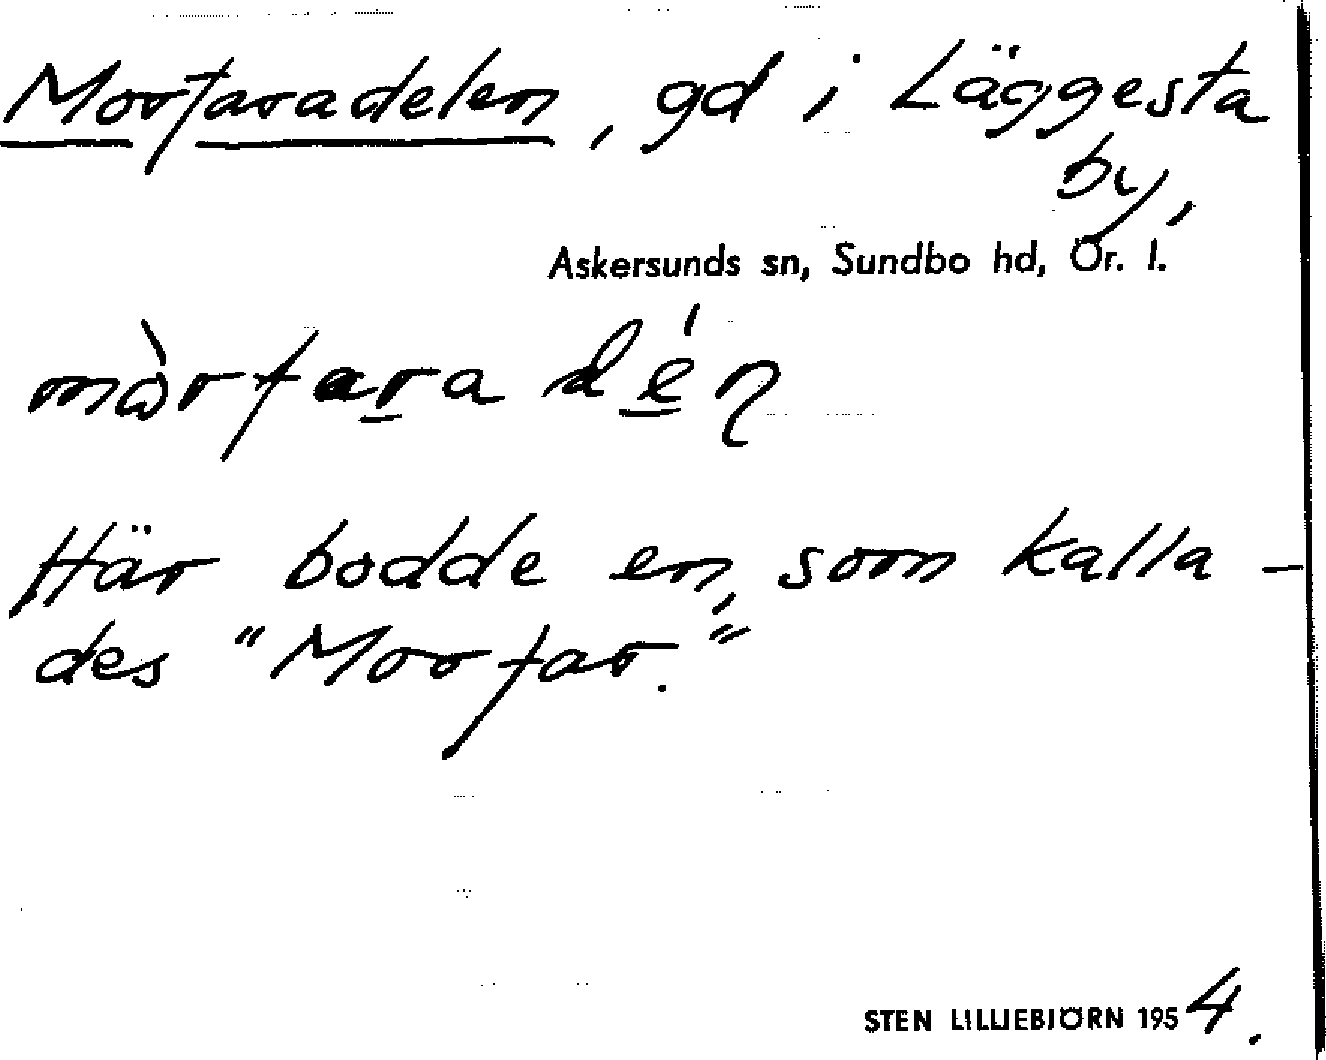 Morfaradelen, gd i Läggesta
by,
Askersunds sn, Sundbo hd, Ör. l.
mòrfara dén
Här bodde en, som kalla-
des "Morfar."
STEN LILLIEBJÖRN 1954.